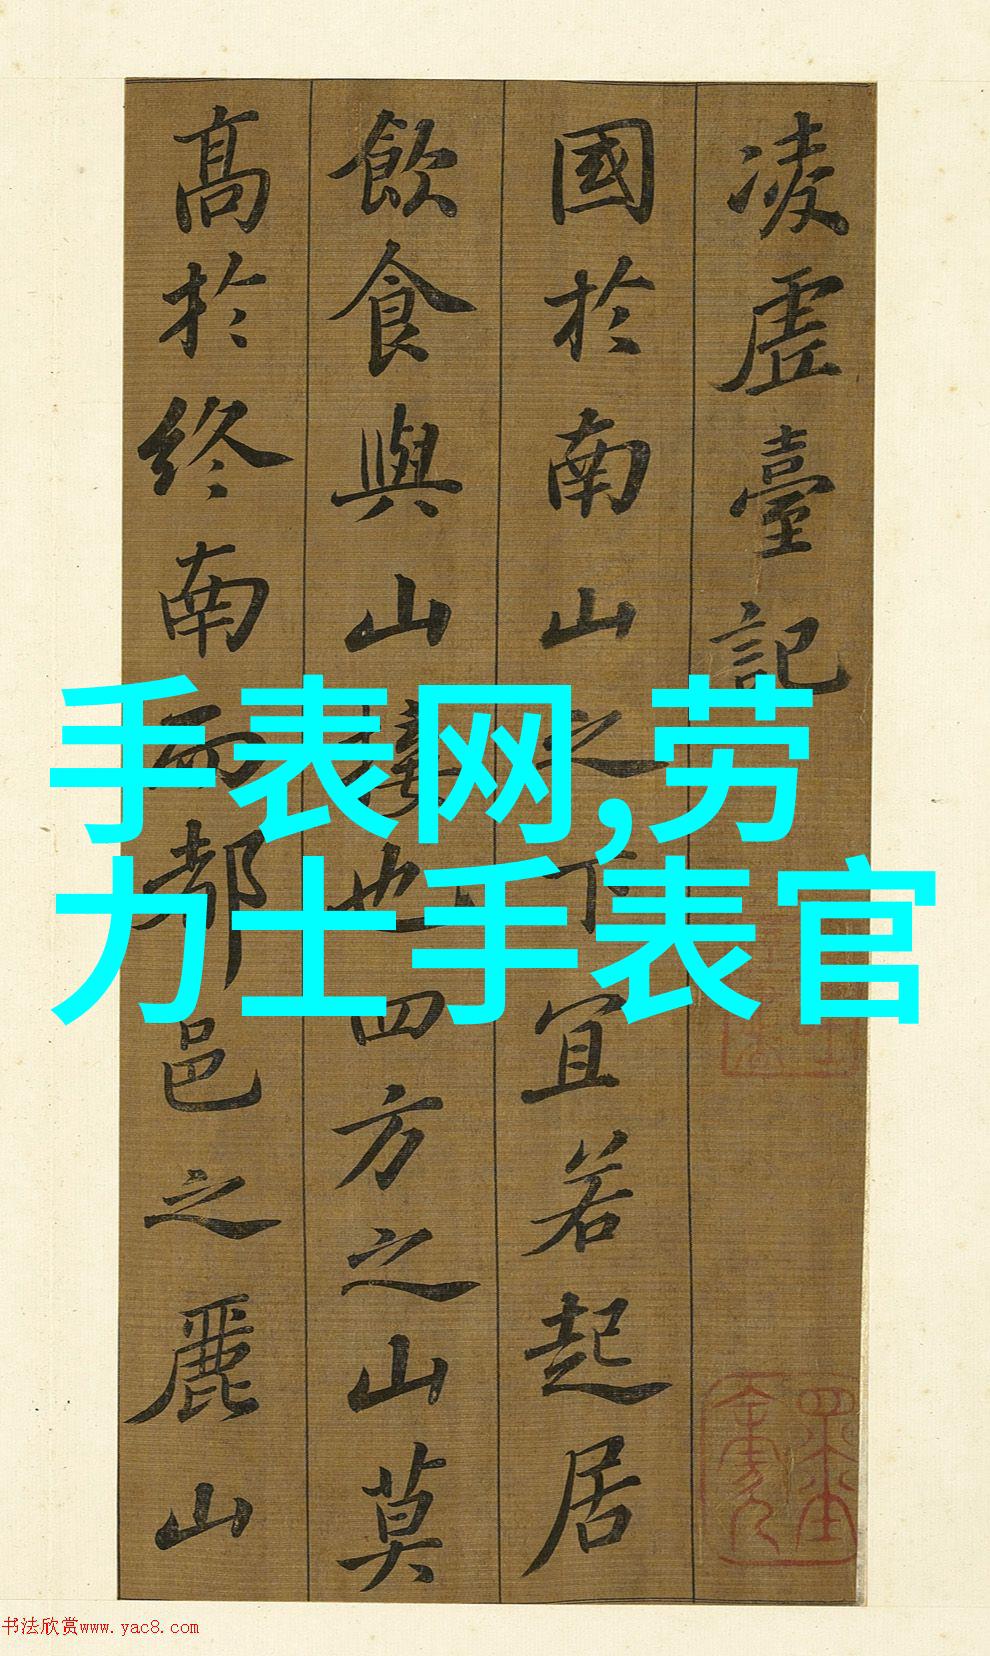 凌虚臺記
國於南山之下宜若起居
飲食與山接也四方之山莫
高於终南而都邑之麗山
手表网,劳
力士手表官
书法欣赏www.yac8.com